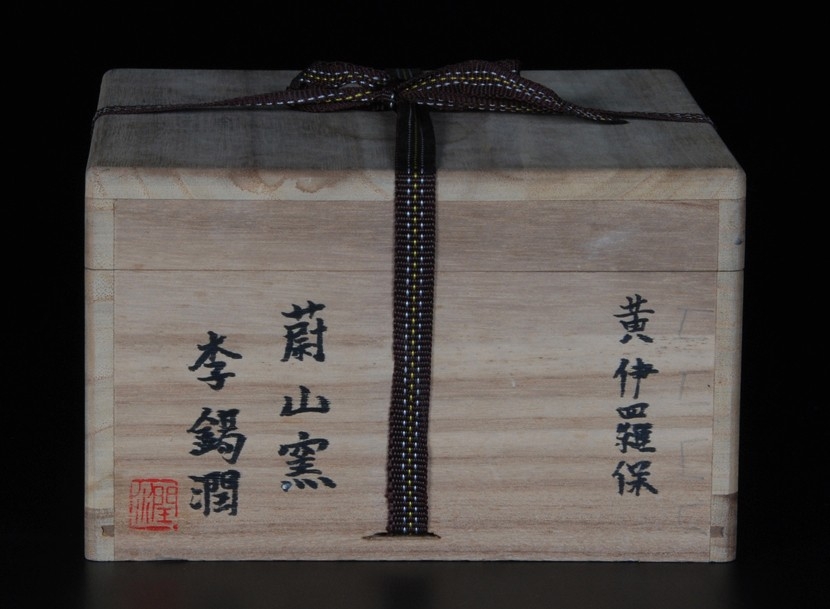 黄伊羅保
蔚山窯
李鍚潤
潤